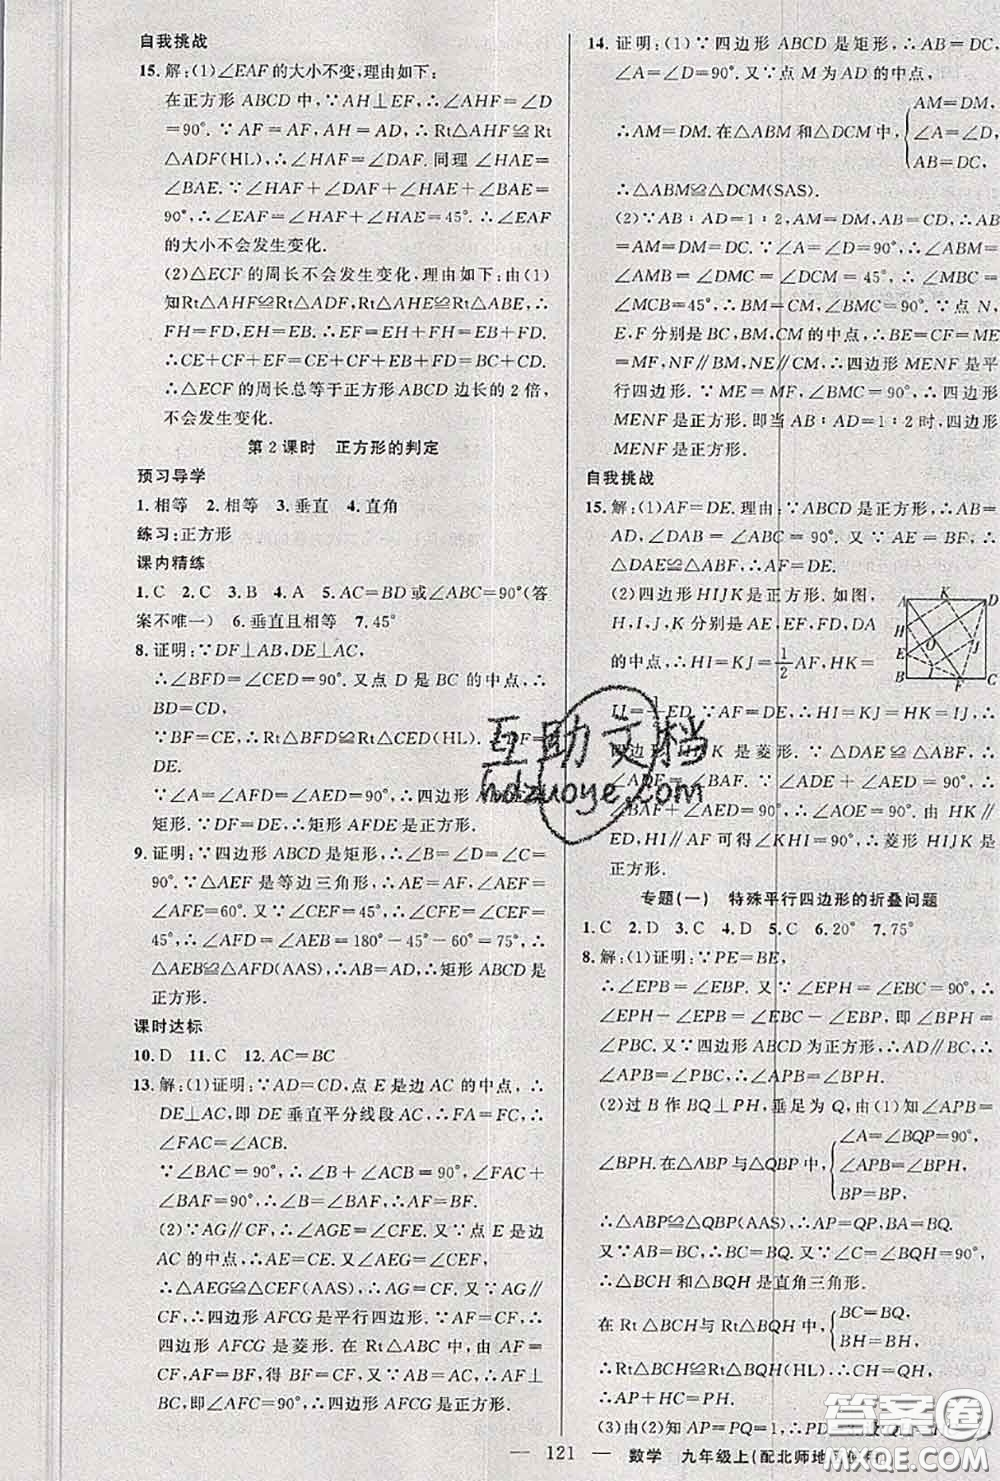 自我挑战
15. 解:(1)∠EAF的大小不变,理由如下:
在正方形 ABCD 中,∵AH⊥EF,∴∠AHF=∠D
=90°. ∵AF=AF,AH=AD,∴Rt△AHF≌Rt
△ADF(HL). ∴∠HAF=∠DAF. 同理 ∠HAE=
∠BAE. ∵∠HAF+∠DAF+∠HAE+∠BAE=
90°,∴∠EAF=∠HAF+∠HAE=45°. ∴∠EAF
的大小不会发生变化.
(2)△ECF 的周长不会发生变化,理由如下:由(1)
知Rt△AHF≌Rt△ADF,Rt△AHE≌Rt△ABE,∴
FH=FD,EH=EB. ∴EF=EH+FH=EB+FD.
∴CE+CF+EF=CE+CF+EB+FD=BC+CD.
∴△ECF 的周长总等于正方形 ABCD 边长的 2 倍,
不会发生变化.
第 2 课时 正方形的判定
预习导学
1. 相等 2. 相等 3. 垂直 4. 直角
练习:正方形
课内精练
1. C 2. C 3. B 4. A 5. AC=BD或∠ABC=90°(答
案不唯一) 6. 垂直且相等 7. 45°
8. 证明:∵DF⊥AB,DE⊥AC,
∴∠BFD=∠CED=90°. 又点 D 是 BC 的中点,∴
BD=CD,
∵BF=CE,∴Rt△BFD≌Rt△CED(HL). ∴DF=
DE.
∵∠A=∠AFD=∠AED=90°,∴四边形 AFDE 是
矩形. ∵DF=DE,∴矩形 AFDE 是正方形.
9. 证明:∵四边形 ABCD 是矩形,∴∠B=∠D=∠C=
90°. ∵△AEF 是等边三角形,∴AE=AF,∠AEF=
∠AFE=60°. 又 ∵∠CEF=45°,∴∠CFE=∠CEF=
45°,∴∠AFD=∠AEB=180°-45°-60°=75°,∴
△AEB≌△AFD(AAS),∴AB=AD,∴矩形 ABCD 是
正方形.
课时达标
10. D 11. C 12. AC=BC
13. 解:(1)证明:∵AD=CD,点 E 是边 AC 的中点,∴
DE⊥AC,即 DE 垂直平分线段 AC,∴FA=FC,∴
∠FAC=∠ACB.
∵∠BAC=90°,∴∠B+∠ACB=90°,∠FAC+
∠BAF=90°,∴∠B=∠BAF,∴AF=BF.
(2)∵AG∥CF,∴∠AGE=∠CFE. 又∵点 E 是边
AC 的中点,∴AE=CE. 又∠AEG=∠CEF,
∴△AEG≌△CEF(AAS),∴AG=CF. 又AG∥
CF,∴四边形 AFCG 是平行四边形. ∵AF=CF,∴四
边形 AFCG 是菱形. 在 Rt△ABC 中,由 AF=CF,
AF=BF,得 BF=CF,又 AB=AC,∴AF⊥BC,
∴∠AFC=90°,∴四边形 AFCG 是正方形.
14. 证明:(1)∵四边形 ABCD 是矩形,∴AB=DC,
∠A=∠D=90°. 又∵点 M为AD的中点,
∴AM=DM. 在△ABM 和△DCM 中,{AM=DM,
∠A=∠D,
AB=DC,
∴△ABM≌△DCM(SAS).
(2)∵AB∶AD=1∶2,AM=DM,AB=CD,∴AB
=AM=DM=DC. ∵∠A=∠D=90°,∴∠ABM=
∠AMB=∠DMC=∠DCM=45°,∴∠MBC=
∠MCB=45°,∴BM=CM,∠BMC=90°. ∵点 N,
E,F 分别是 BC,BM,CM 的中点,∴BE=CF=ME
=MF,NF∥BM,NE∥CM,∴四边形 MENF 是平
行四边形. ∵ME=MF,∠BMC=90°,∴四边形
MENF 是正方形. 即当 AB∶AD=1∶2时,四边形
MENF 是正方形.
自我挑战
15. 解:(1)AF=DE. 理由:∵ABCD是正方形,∴AB=
AD,∠DAB=∠ABC=90°. 又 ∵AE=BF,
∴△DAE≌△ABF,∴AF=DE.
(2)四边形 HIJK 是正方形. 如图,
H,I,J,K 分别是 AE,EF,FD,DA
的中点,∴HI=KJ=1/2 AF,HK=
A K D
H
E O I J
B F C
IJ=1/2ED. ∵AF=DE,∴HI=KJ=HK=IJ,∴
四边形 HIJK 是菱形. ∵△DAE≌△ABF,
∴∠ADE=∠BAF. ∵∠ADE+∠AED=90°,
∴∠BAF+∠AED=90°,∴∠AOE=90°. 由 HK∥
ED,HI∥AF 可得∠KHI=90°,∴菱形 HIJK 是
正方形.
专题(一) 特殊平行四边形的折叠问题
1. C 2. D 3. C 4. D 5. C 6. 20° 7. 75°
8. 解:(1)证明:∵PE=BE,
∴∠EPB=∠EBP. 又∵∠EPH=∠EBC=90°,∴
∠EPH-∠EPB=∠EBC-∠EBP,即 ∠BPH=
∠PBC. 又∵四边形 ABCD为正方形,∴AD∥BC,
∴∠APB=∠PBC,∴∠APB=∠BPH.
(2)过 B 作 BQ⊥PH,垂足为 Q,由(1)知∠APB=
∠BPH. 在△ABP与△QBP中,{∠A=∠BQP=90°,
∠APB=∠BPH,
BP=BP,
∴△ABP≌△QBP(AAS),∴AP=QP,BA=BQ.
又∵AB=BC,∴BC=BQ. 又∵∠C=∠BQH=90°,
∴△BCH 和△BQH 是直角三角形.
在 Rt△BCH与 Rt△BQH 中,{BC=BQ,
BH=BH,
∴Rt△BCH≌Rt△BQH(HL),∴CH=QH,
∴AP+HC=PH.
(3)由(2)知AP=PQ=1,
— 121 — 数学 九年级上(配北师地
互助文档
hdzuoye.com
答案圈
MXQE.COM